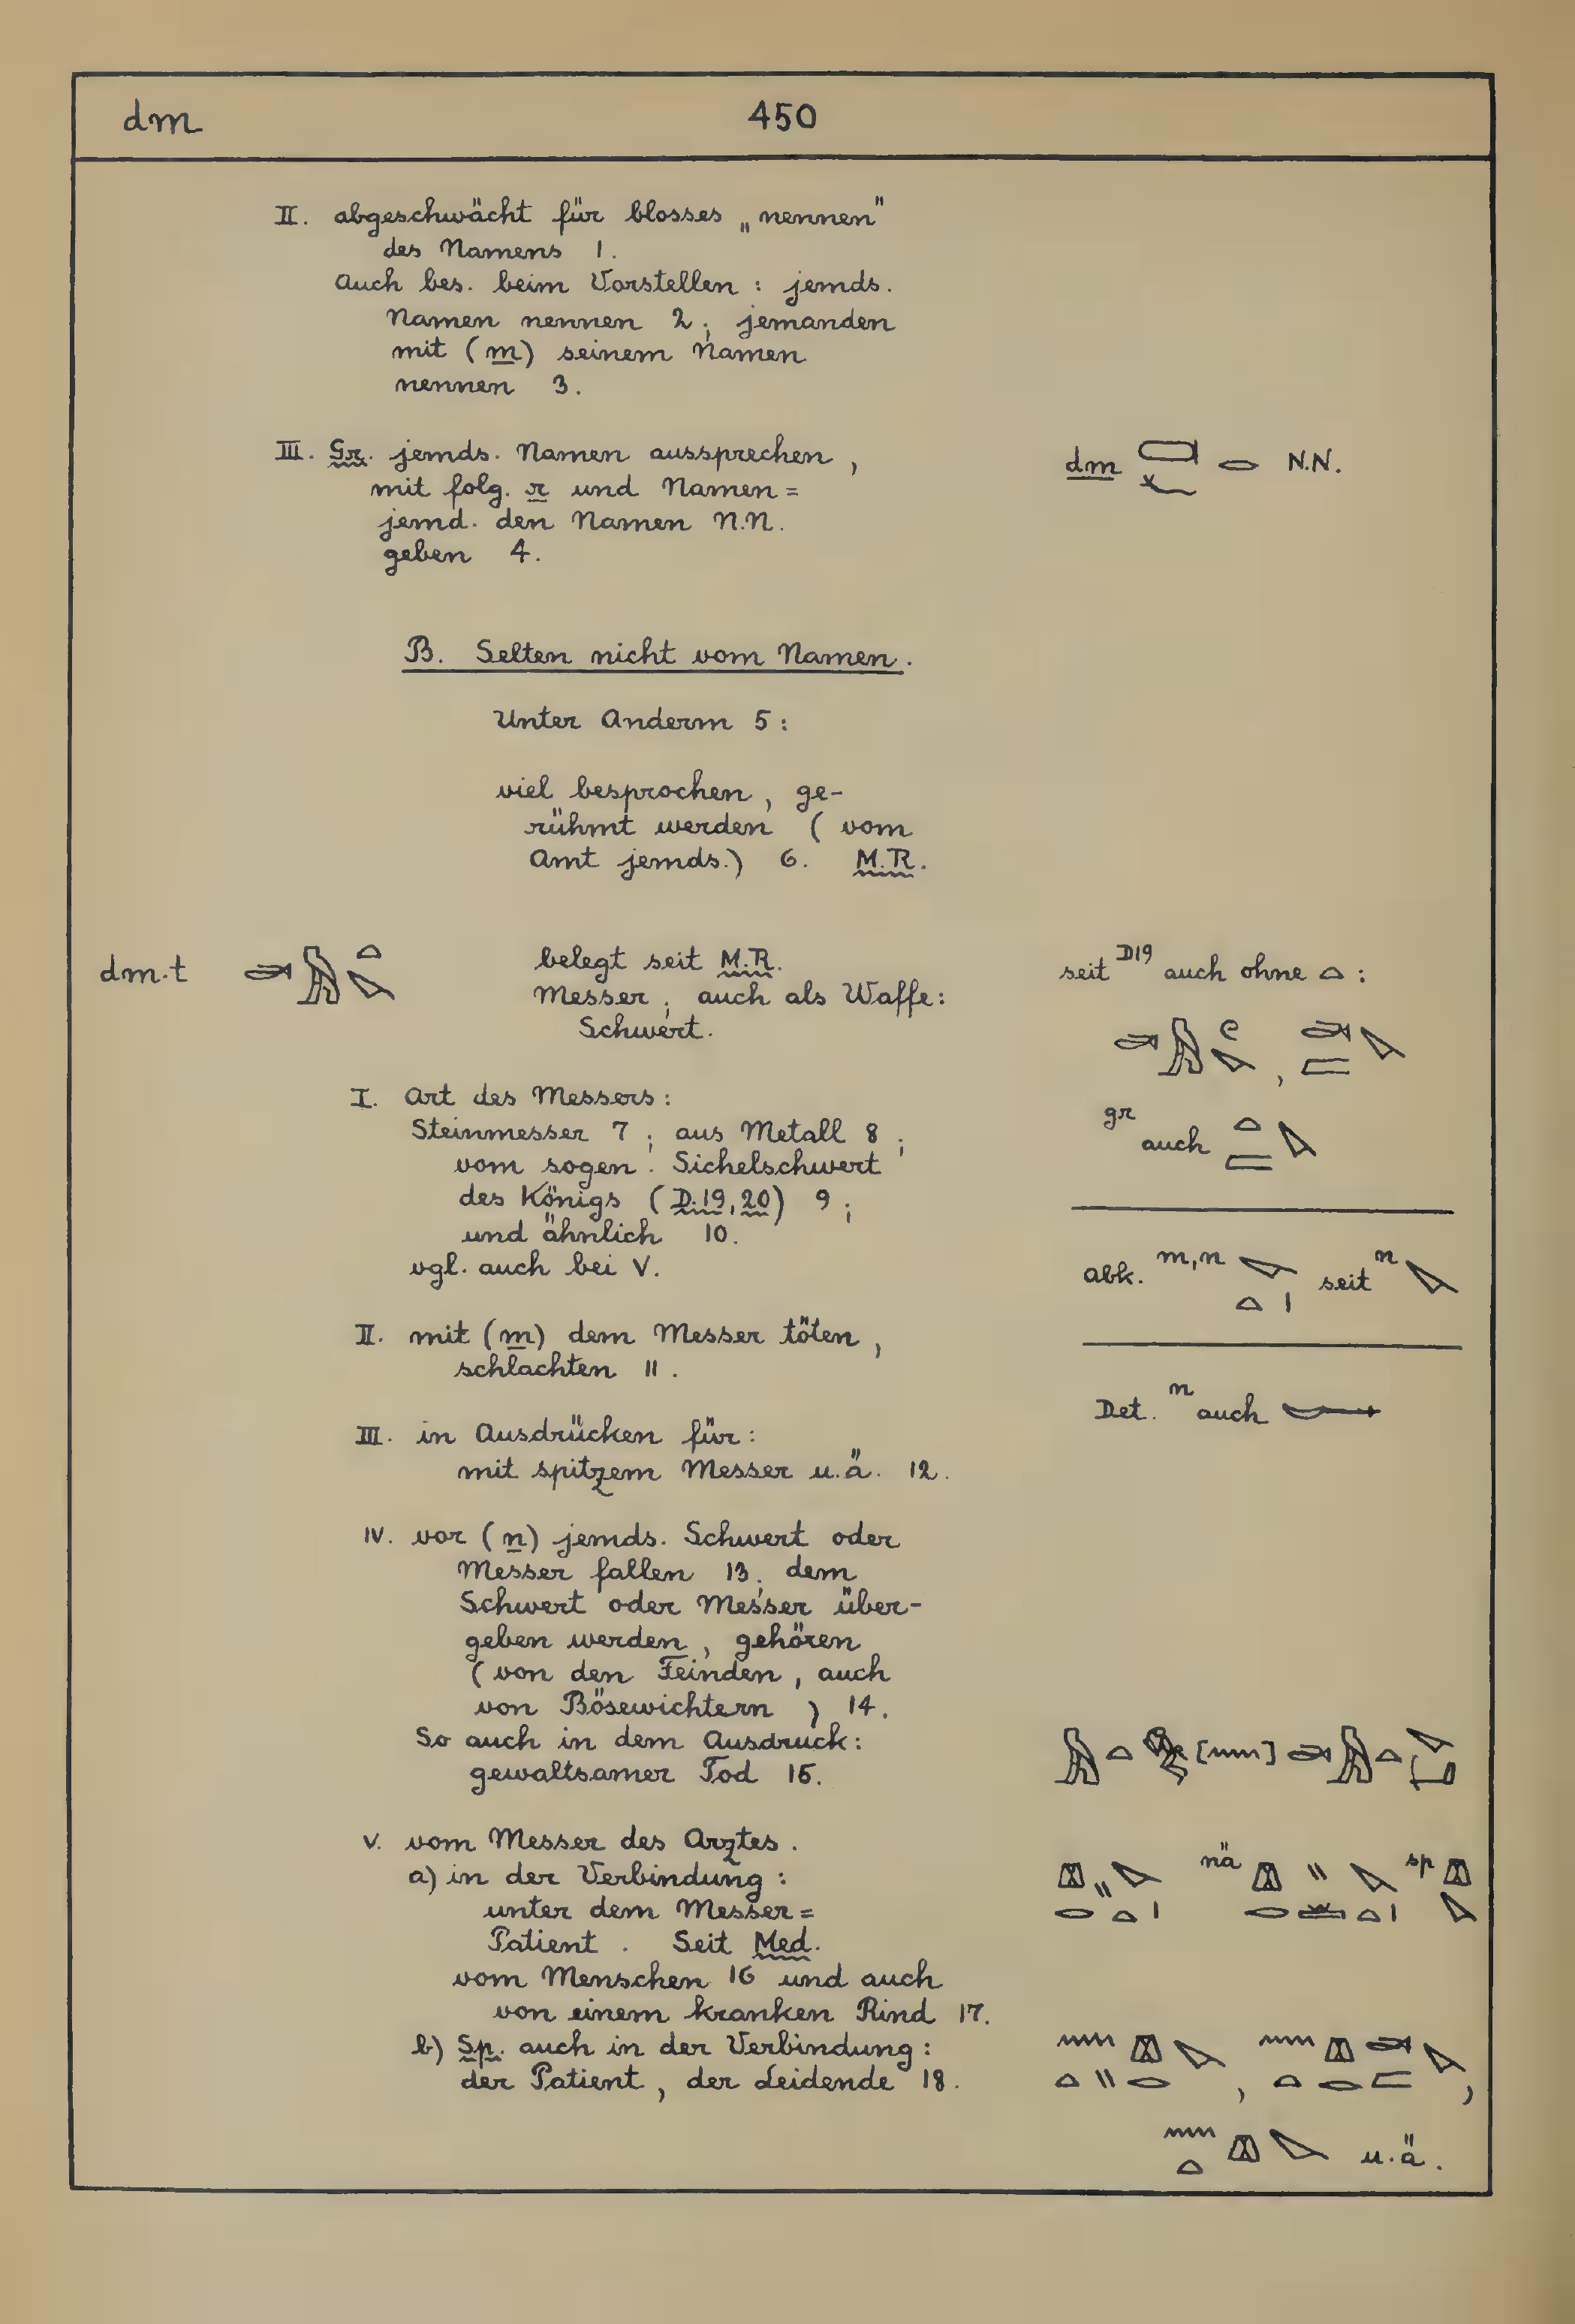 dm 450
II. abgeschwächt für blosses „nennen"
des Namens 1.
Auch bes. beim Vorstellen : jemds.
Namen nennen 2 ; jemanden
mit (m) seinem Namen
nennen 3.
III. Gr. jemds. Namen aussprechen ,
mit folg. r und Namen =
jemd. den Namen N.N.
geben 4.
dm N.N.
B. Selten nicht vom Namen .
Unter Anderm 5 :
viel besprochen , ge-
rühmt werden ( vom
Amt jemds.) 6. M.R.
dm.t
belegt seit M.R.
Messer ; auch als Waffe :
Schwert .
seit D19 auch ohne :
gr auch
abk. m,n seit n
Det. n auch
I. Art des Messers :
Steinmesser 7 ; aus Metall 8 ;
vom sogen. Sichelschwert
des Königs ( D.19, 20) 9 ;
und ähnlich 10.
vgl. auch bei V.
II. mit (m) dem Messer töten ,
schlachten 11 .
III. in Ausdrücken für :
mit spitzem Messer u.ä. 12.
IV. vor (n) jemds. Schwert oder
Messer fallen 13 ; dem
Schwert oder Messer über-
geben werden , gehören
( von den Feinden , auch
von Bösewichtern ) 14.
So auch in dem Ausdruck :
gewaltsamer Tod 15.
V. vom Messer des Arztes .
a) in der Verbindung :
unter dem Messer =
Patient . Seit Med.
vom Menschen 16 und auch
von einem kranken Rind 17.
nä sp
b) Sp. auch in der Verbindung :
der Patient , der Leidende 18 .
u.ä.